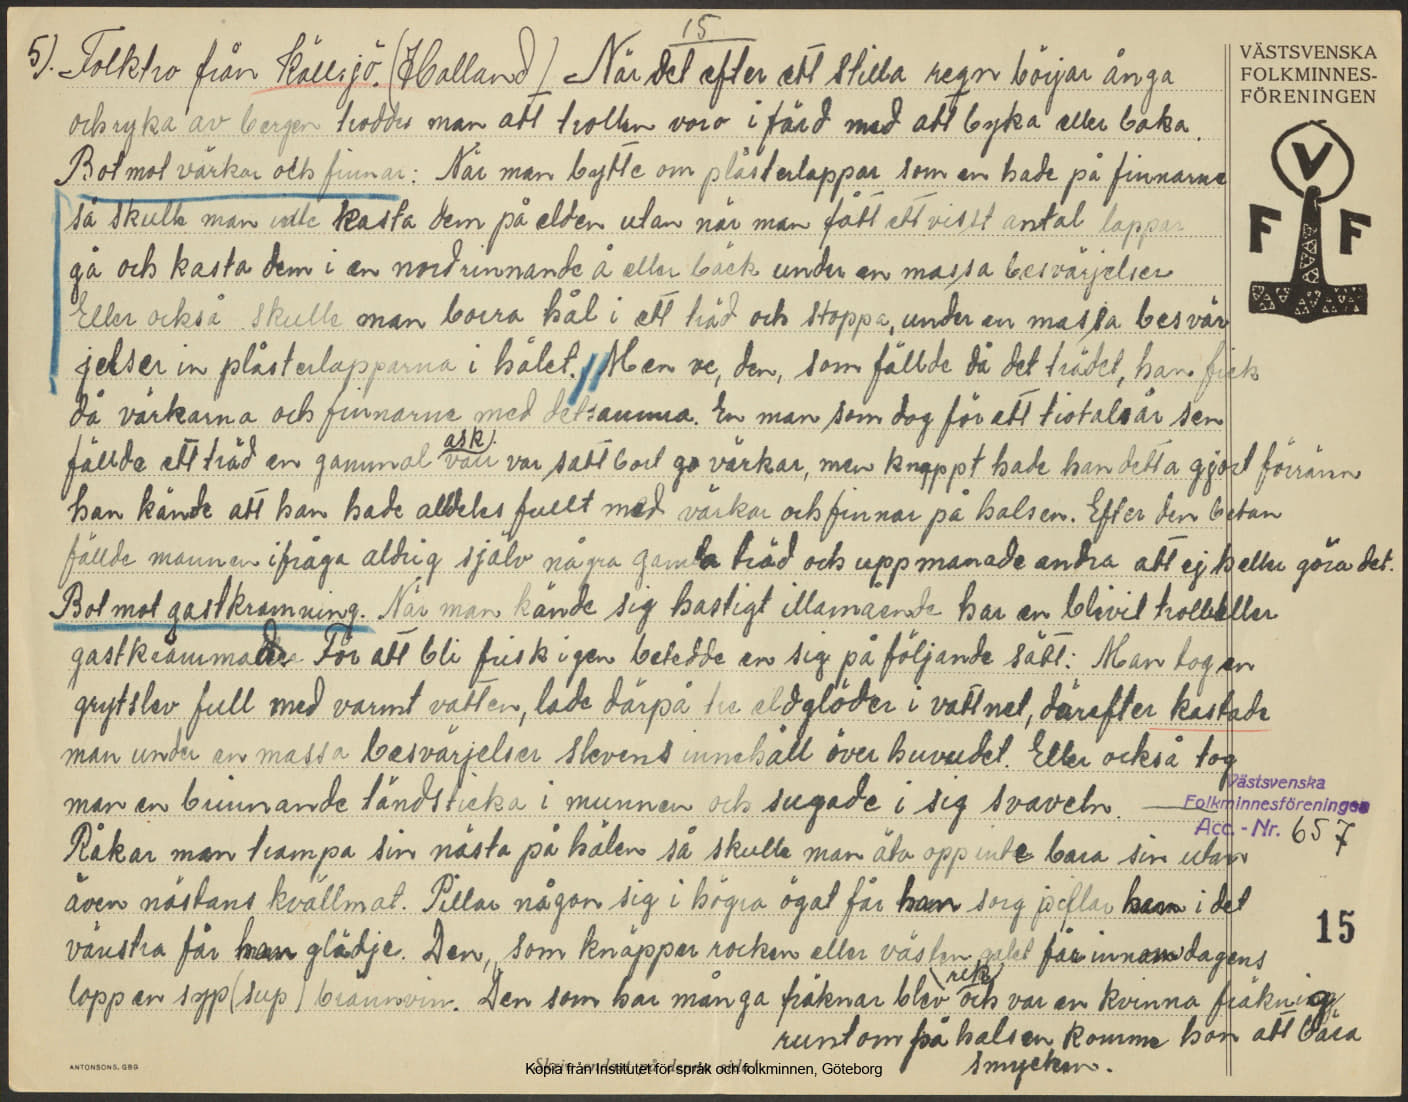 15
5). Folktro från Källsjö (Halland) När det efter ett stilla regn börjar ånga
och ryka av bergen troddes man att trollen voro i färd med att byka eller baka.
Bot mot värkar och finnar: När man bytte om plåsterlappar som en hade på finnarne
så skulle man inte kasta dem på elden utan när man fått ett visst antal lappar
gå och kasta dem i en nordrinnande å eller bäck under en massa besvärjelser
Eller också skulle man borra hål i ett träd och stoppa, under en massa besvär
jelser in plåsterlapparna i hålet. Men ve, den, som fällde då det trädet, han fick
då värkarna och finnarne med detsamma. En man som dog för ett tiotalsår sen
fällde ett träd en gammal ask vari var satt bort go värkar, men knappt hade han detta gjort förränn
han kände att han hade alldeles fullt med värkar och finnar på halsen. Efter den betan
fällde mannen ifråga aldrig själv några gamla träd och uppmanade andra att ej heller göra det.
Bot mot gastkramning. När man kände sig hastigt illamående har en blivit troll eller
gastkrammade För att bli frisk igen betedde en sig på följande sätt: Man tog en
grytslev full med varmt vatten, lade därpå tre eldglöder i vattnet, därefter kastade
man under en massa besvärjelser slevens innehåll över huvudet. Eller också tog
man en brinnande tändsticka i munnen och sugade i sig svaveln.
Råkar man trampa sin nästa på hälen så skulle man äta opp inte bara sin utan
även nästans kvällmat. Pillar någon sig i högra ögat får han sorg pillar han i det
vänstra får han glädje. Den, som knäpper rocken eller västen galet får innom dagens
lopp en syp (sup) brännvin. Den som har många fräknar blev rik och var en kvinna fräknig
runt om på halsen komme hon att bära
smycken.
VÄSTSVENSKA
FOLKMINNES-
FÖRENINGEN
V
F F
Västsvenska
Folkminnesföreningen
Acc.-Nr. 657
15
ANTONSONS, GBG
Kopia från Institutet för språk och folkminnen, Göteborg